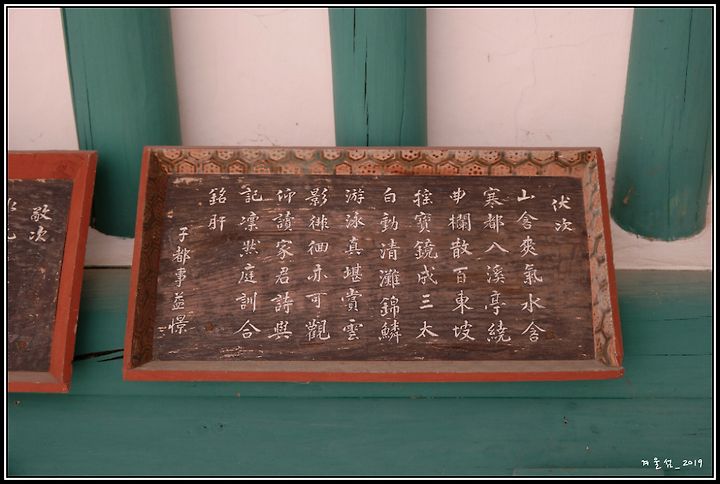 伏次
山含爽氣水含
寒都入溪亭繞
曲欄散百東坡
搖寶鏡成三太
白動清灘錦鱗
游泳真堪賞雲
影徘徊亦可觀
仰讀家君詩與
記凛然庭訓合
銘肝
子都事益憬
敬次
겨울섬_2019